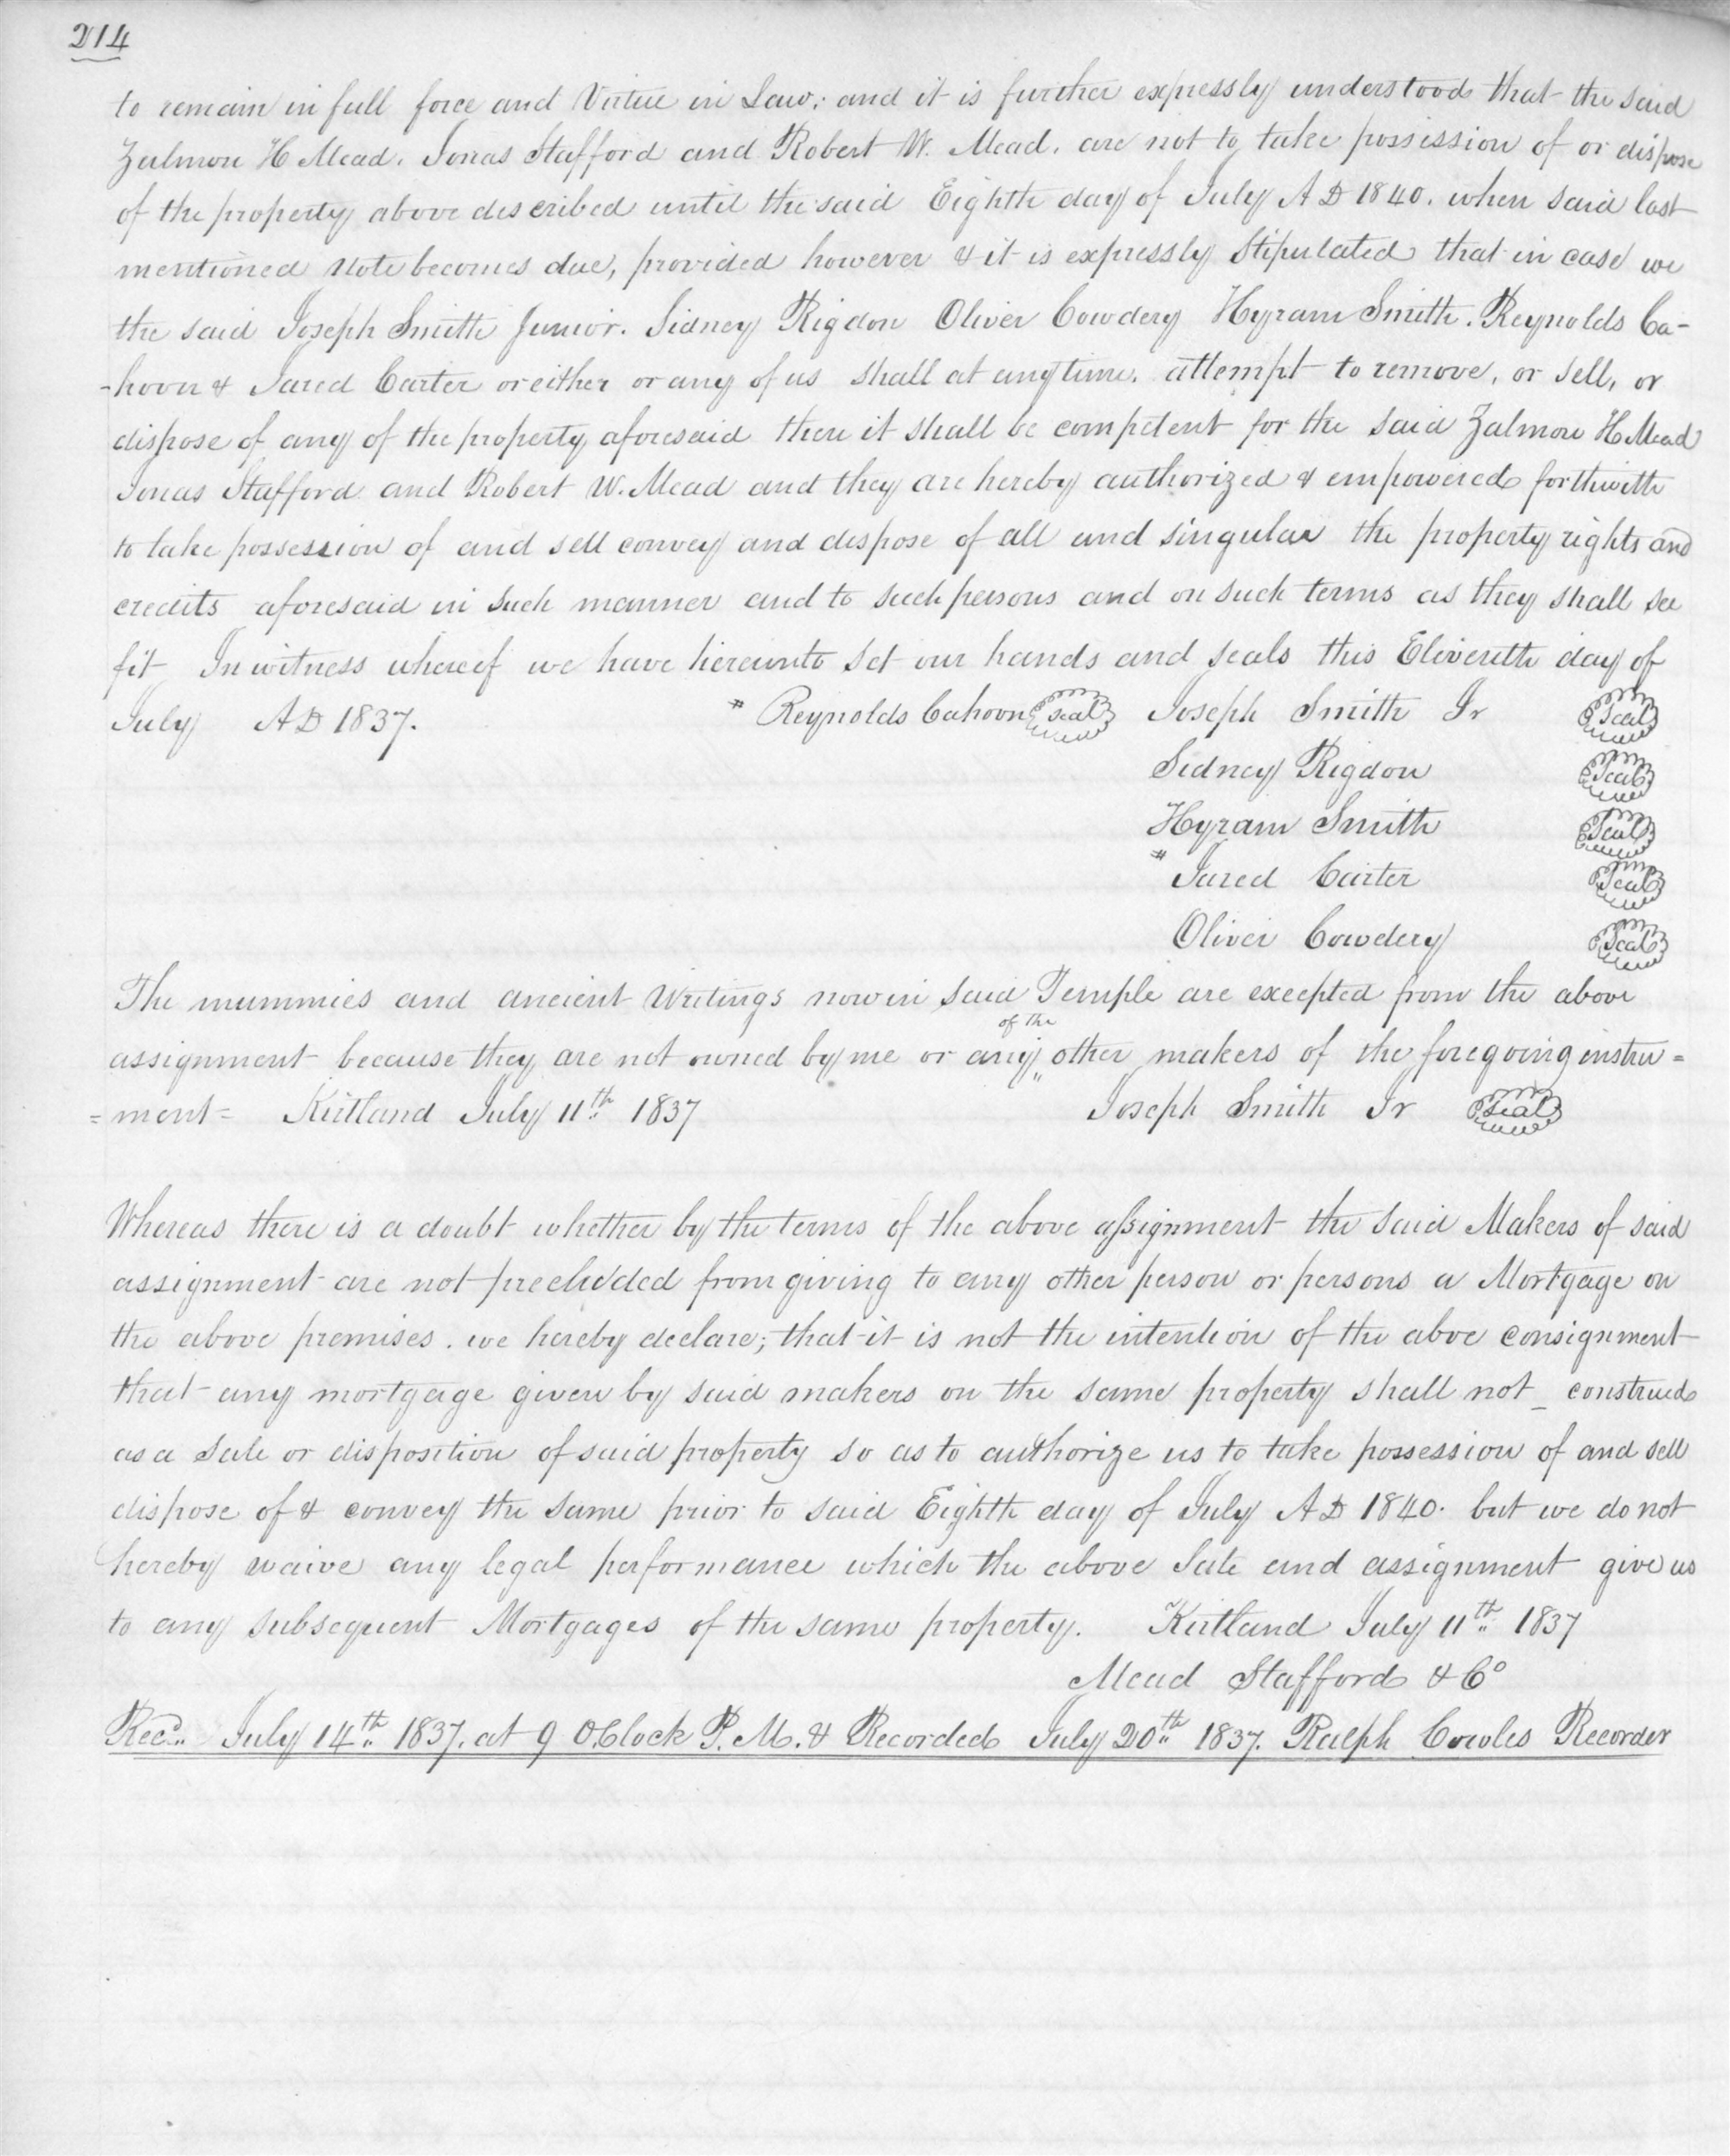 214
to remain in full force and Virtue in Law; and it is further expressly understood that the said
Zalmon H Mead. Jonas Stafford and Robert W. Mead. are not to take possission of or dispose
of the property above described until the said Eighth day of July A D 1840. when said last
mentioned note becomes due, provided however & it is expressly Stipulated that in case we
the said Joseph Smith Junior. Sidney Rigdon Oliver Cowdery Hyram Smith. Reynolds Ca-
-hoon & Jared Carter or either or any of us shall at any time. attempt to remove, or sell, or
dispose of any of the property aforesaid then it shall be competent for the said Zalmon H Mead
Jonas Stafford and Robert W. Mead and they are hereby authorized & empowered forthwith
to take possession of and sell convey and dispose of all and singular the property rights and
credits aforesaid in such manner and to such persons and on such terms as they shall see
fit In witness whereof we have hereunto set our hands and seals this Eleventh day of
July A D 1837. * Reynolds Cahoon seal Joseph Smith Jr Seal
Sidney Rigdon Seal
Hyram Smith Seal
* Jared Carter Seal
Oliver Cowdery Seal
The mummies and ancient Writings now in said Temple are excepted from the above
assignment because they are not owned by me or any of the other makers of the foregoing instru=
=ment= Kirtland July 11th 1837 Joseph Smith Jr Seal
Whereas there is a doubt whether by the terms of the above assignment the said Makers of said
assignment are not precluded from giving to any other person or persons a Mortgage on
the above premises. we hereby declare; that it is not the intention of the abve consignment
that any mortgage given by said makers on the same property shall not _ construed
as a Sale or disposition of said property so as to authorize us to take possession of and sell
dispose of & convey the same prior to said Eighth day of July A D 1840. but we do not
hereby waive any legal performance which the above Sale and assignment give us
to any subsequent Mortgages of the same property. Kirtland July 11th 1837
Mead Stafford & Co
Recd. July 14th 1837. at 9 O.Clock P.M. & Recorded July 20th 1837. Ralph Cowles Recorder